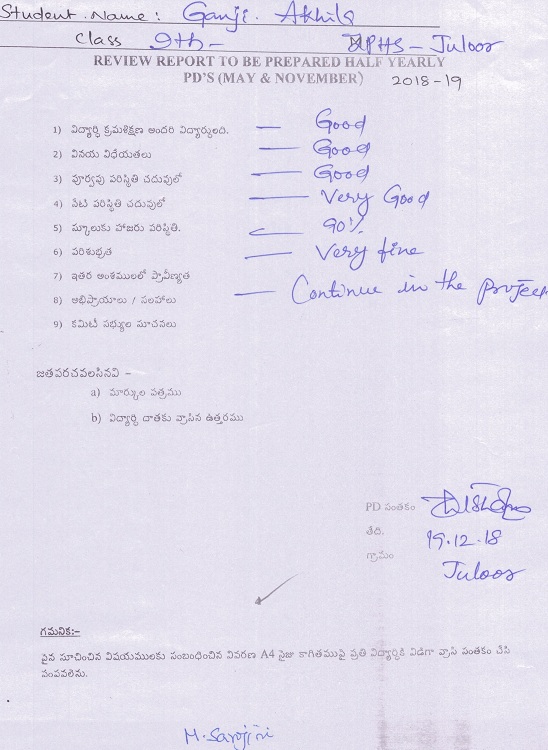 Student Name: Ganji. Akhila
Class 9th - ZPHS - Juloor
REVIEW REPORT TO BE PREPARED HALF YEARLY
PD'S (MAY & NOVEMBER) 2018-19
1) విద్యార్థి క్రమశిక్షణ అందరి విద్యార్థులది. — Good
2) వినయ విధేయతలు — Good
3) పూర్వపు పరిస్థితి చదువులో — Good
4) నేటి పరిస్థితి చదువులో — Very Good
5) స్కూలుకు హాజరు పరిస్థితి. — 90%
6) పరిశుభ్రత — Very fine
7) ఇతర అంశములలో ప్రావీణ్యత
8) అభిప్రాయాలు / సలహాలు — Continue in the
9) కమిటీ సభ్యుల సూచనలు
జతపరచవలసినవి -
a) మార్కుల పత్రము
b) విద్యార్థి దాతకు వ్రాసిన ఉత్తరము
PD సంతకం
తేది. 19.12.18
గ్రామం Juloor
గమనిక:-
పైన సూచించిన విషయములకు సంబంధించిన వివరణ A4 సైజు కాగితముపై ప్రతి విద్యార్థికి విడిగా వ్రాసి సంతకం చేసి
పంపవలెను.
M. Sarojini